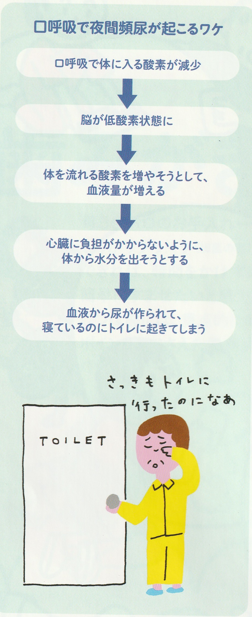 口呼吸で夜間頻尿が起こるワケ
口呼吸で体に入る酸素が減少
脳が低酸素状態に
体を流れる酸素を増やそうとして、
血液量が増える
心臓に負担がかからないように、
体から水分を出そうとする
血液から尿が作られて、
寝ているのにトイレに起きてしまう
さっきもトイレに
行ったのになあ
TOILET